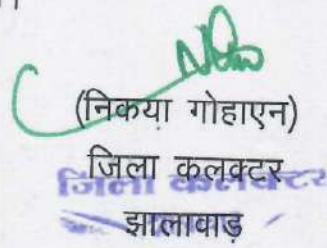 (निकया गोहाएन)
जिला कलक्टर
जिला कलक्टर
झालावाड़